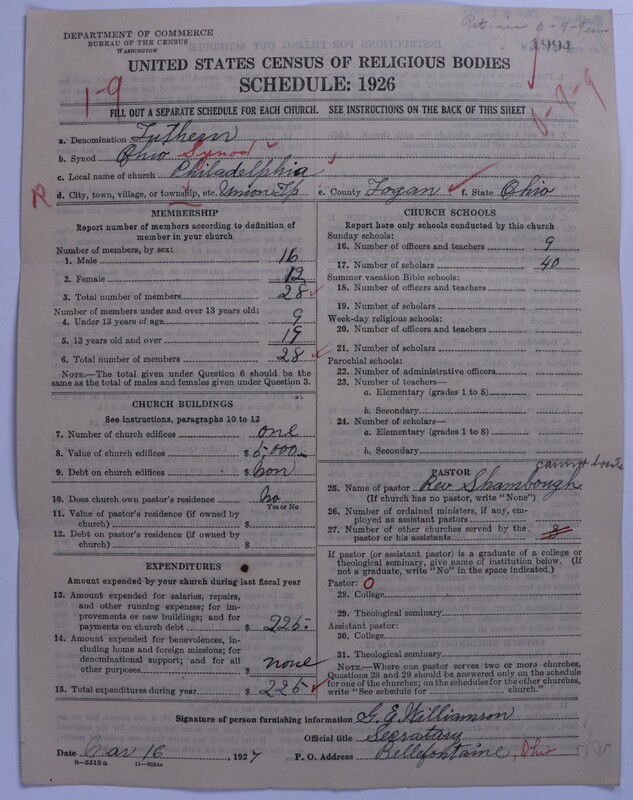 DEPARTMENT OF COMMERCE
BUREAU OF THE CENSUS
WASHINGTON
1994
UNITED STATES CENSUS OF RELIGIOUS BODIES
SCHEDULE: 1926
1-9
FILL OUT A SEPARATE SCHEDULE FOR EACH CHURCH. SEE INSTRUCTIONS ON THE BACK OF THIS SHEET
a. Denomination Lutheran
b. Synod Ohio Synod
c. Local name of church Philadelphia
R d. City, town, village, or township, etc. Union Tp. e. County Logan f. State Ohio
MEMBERSHIP
Report number of members according to definition of member in your church
Number of members, by sex:
1. Male 16
2. Female 12
3. Total number of members 28
Number of members under and over 13 years old:
4. Under 13 years of age 9
5. 13 years old and over 19
6. Total number of members 28
NOTE.—The total given under Question 6 should be the same as the total of males and females given under Question 3.
CHURCH BUILDINGS
See instructions, paragraphs 10 to 12
7. Number of church edifices one
8. Value of church edifices $ 5,000
9. Debt on church edifices $ non
10. Does church own pastor's residence? No
Yes or No
11. Value of pastor's residence (if owned by church) $
12. Debt on pastor's residence (if owned by church) $
EXPENDITURES
Amount expended by your church during last fiscal year
13. Amount expended for salaries, repairs, and other running expenses; for improvements or new buildings; and for payments on church debt $ 225
14. Amount expended for benevolences, including home and foreign missions; for denominational support; and for all other purposes $ none
15. Total expenditures during year $ 225
CHURCH SCHOOLS
Report here only schools conducted by this church
Sunday schools:
16. Number of officers and teachers 9
17. Number of scholars 40
Summer vacation Bible schools:
18. Number of officers and teachers
19. Number of scholars
Week-day religious schools:
20. Number of officers and teachers
21. Number of scholars
Parochial schools:
22. Number of administrative officers
23. Number of teachers—
a. Elementary (grades 1 to 8)
b. Secondary
24. Number of scholars—
a. Elementary (grades 1 to 8)
b. Secondary
PASTOR
25. Name of pastor Rev Shambough
(If church has no pastor, write "None")
26. Number of ordained ministers, if any, employed as assistant pastors
27. Number of other churches served by the pastor or his assistants
If pastor (or assistant pastor) is a graduate of a college or theological seminary, give name of institution below. (If not a graduate, write "No" in the space indicated.)
Pastor: O
28. College
29. Theological seminary
Assistant pastor:
30. College
31. Theological seminary
NOTE.—Where one pastor serves two or more churches, Questions 28 and 29 should be answered only on the schedule for one of the churches; on the schedules for the other churches, write "See schedule for church."
Signature of person furnishing information G. E. Williamson
Official title Secratary
Date Mar 16, 1927 P. O. Address Bellefontaine, Ohio
8-5518a 11-9034a